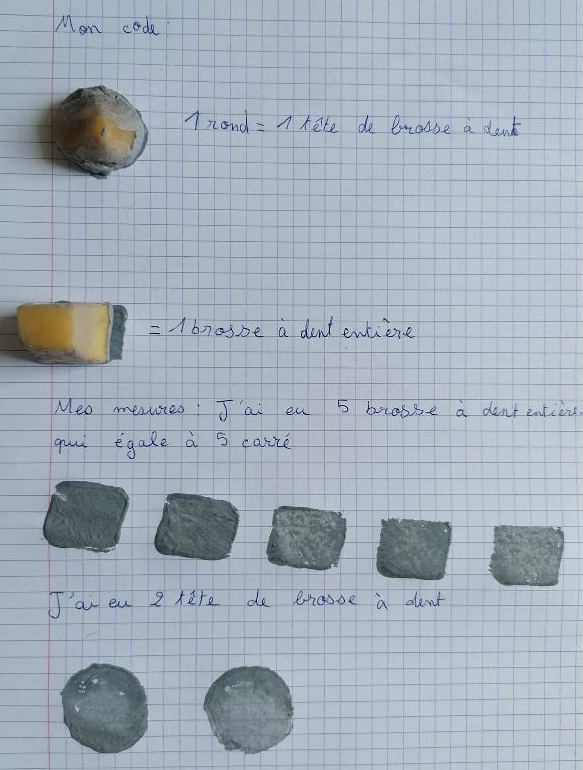 Mon code :
1 rond = 1 tête de brosse à dent
= 1 brosse à dent entière
Mes mesures : J'ai eu 5 brosse à dent entière.
qui égale à 5 carré
J'ai eu 2 tête de brosse à dent